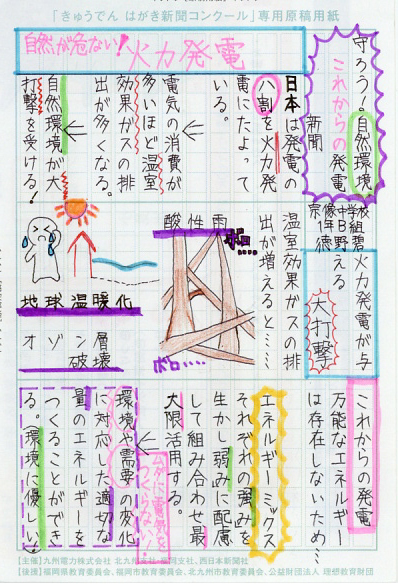 「きゅうでん はがき新聞コンクール」専用原稿用紙
守ろう!自然環境
これからの発電
新聞
宗像中学校
1年B組
自然が危ない!火力発電
日本は発電の
八割を火力発
電にたよって
いる。
電気の消費が
多いほど温室
効果ガスの排
出が多くなる。
自然環境が大
打撃を受ける!
火力発電が与
える
大打撃
温室効果ガスの排
出が増えると……
酸性雨
ボロ……
ボロ……
地球温暖化
オゾン層
破壊
これからの発電
万能なエネルギー
は存在しないため…
エネルギーミックス
それぞれの強みを
生かし弱みに配慮
して組み合わせ最
大限活用する。
環境や需要の変化
に対応した適切な
量のエネルギーを
つくることができ
る。(環境に優しい)
【主催】九州電力株式会社 北九州支社、福岡支社、西日本新聞社
【後援】福岡県教育委員会、福岡市教育委員会、北九州市教育委員会、公益財団法人 理想教育財団